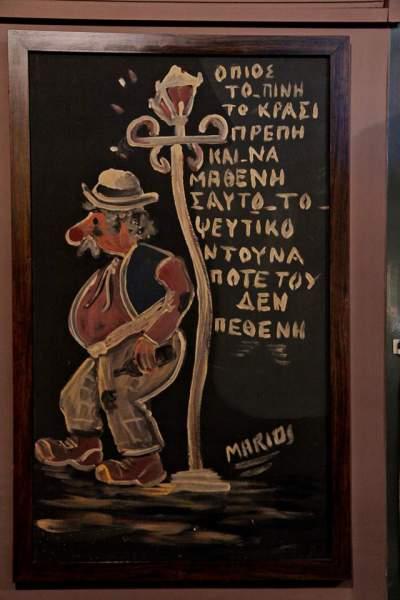 ΟΠΙΟΣ
ΤΟ_ΠΙΝΗ
ΤΟ ΚΡΑΣΙ
ΠΡΕΠΗ
ΚΑΙ_ΝΑ
ΜΑΘΕΝΗ
ΣΑΥΤΩ_ΤΟ_
ΨΕΥΤΙΚΟ
ΝΤΟΥΝΑ
ΠΟΤΕ ΤΟΥ
ΔΕΝ
ΠΕΘΕΝΗ
MARIOS